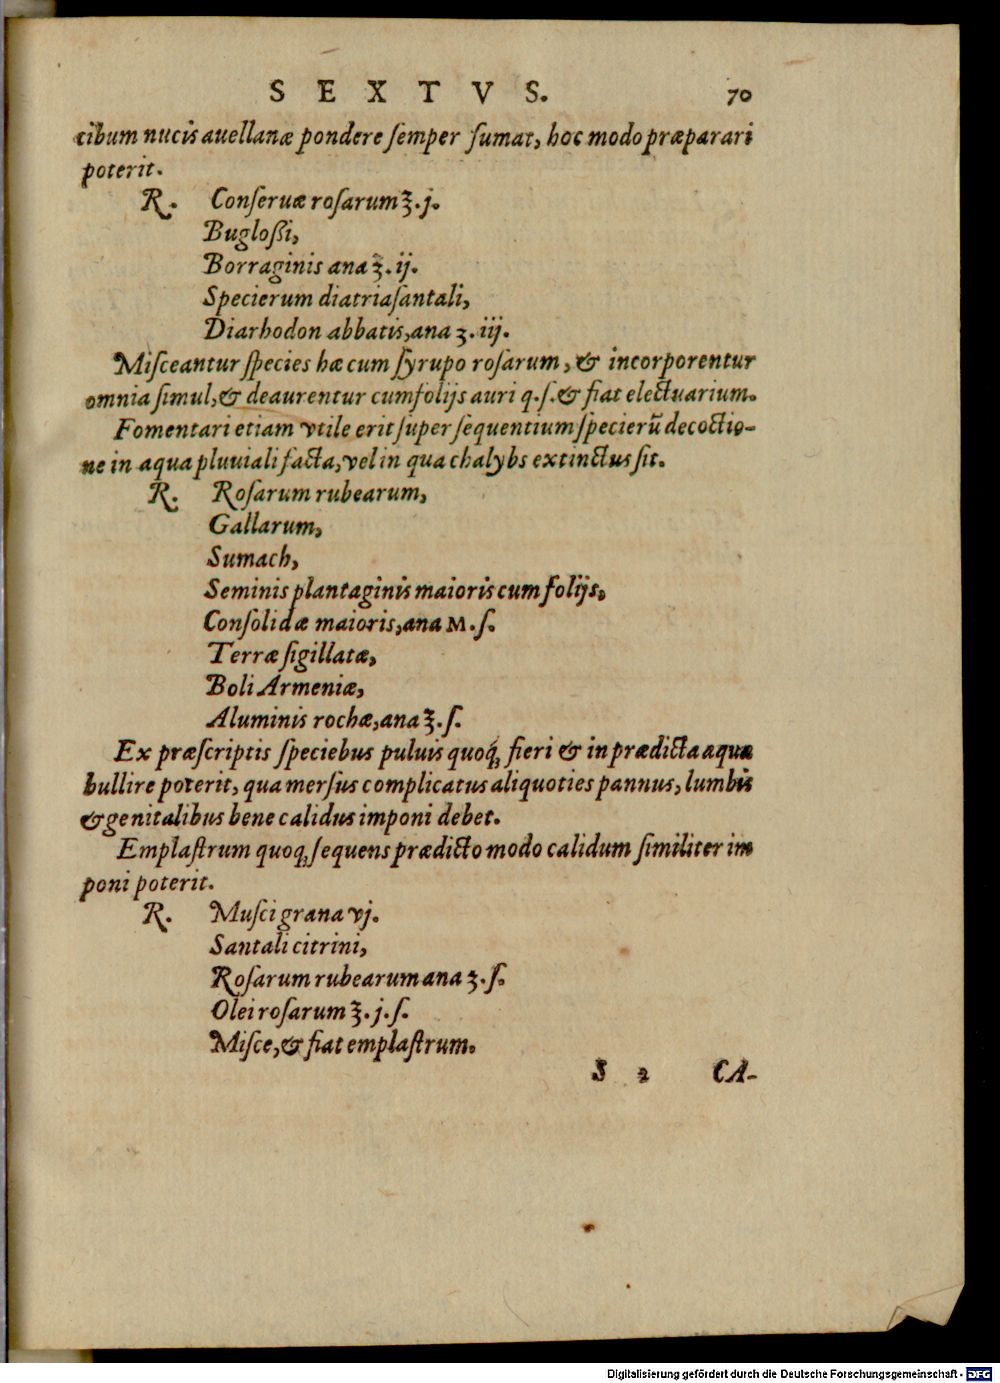 SEXTVS. 70
cibum nucis auellanæ pondere ſemper ſumat, hoc modo præparari
poterit.
℞. Conſeruæ roſarum ℥. j.
Bugloßi,
Borraginis ana ʒ. ij.
Specierum diatriaſantali,
Diarhodon abbatis, ana ʒ. iij.
Miſceantur ſpecies hæ cum ſyrupo roſarum, & incorporentur
omnia ſimul, & deaurentur cum folijs auri q. ſ. & fiat electuarium.
Fomentari etiam vtile erit ſuper ſequentium ſpecierũ decoctio-
ne in aqua pluuiali facta, vel in qua chalybs extinctus ſit.
℞. Roſarum rubearum,
Gallarum,
Sumach,
Seminis plantaginis maioris cum folijs,
Conſolidæ maioris, ana M. ſ.
Terræ ſigillatæ,
Boli Armeniæ,
Aluminis rochæ, ana ℥. ſ.
Ex præſcriptis ſpeciebus puluis quoq́; fieri & in prædicta aqua
bullire poterit, qua merſus complicatus aliquoties pannus, lumbis
& genitalibus bene calidus imponi debet.
Emplaſtrum quoq; ſequens prædicto modo calidum ſimiliter im
poni poterit.
℞. Muſci grana vj.
Santali citrini,
Roſarum rubearum ana ʒ. ſ.
Olei roſarum ℥. j. ſ.
Miſce, & fiat emplaſtrum.
S 2 CA-
Digitalisierung gefördert durch die Deutsche Forschungsgemeinschaft - DFG